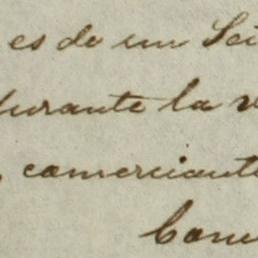 es de un
durante la
comerciante